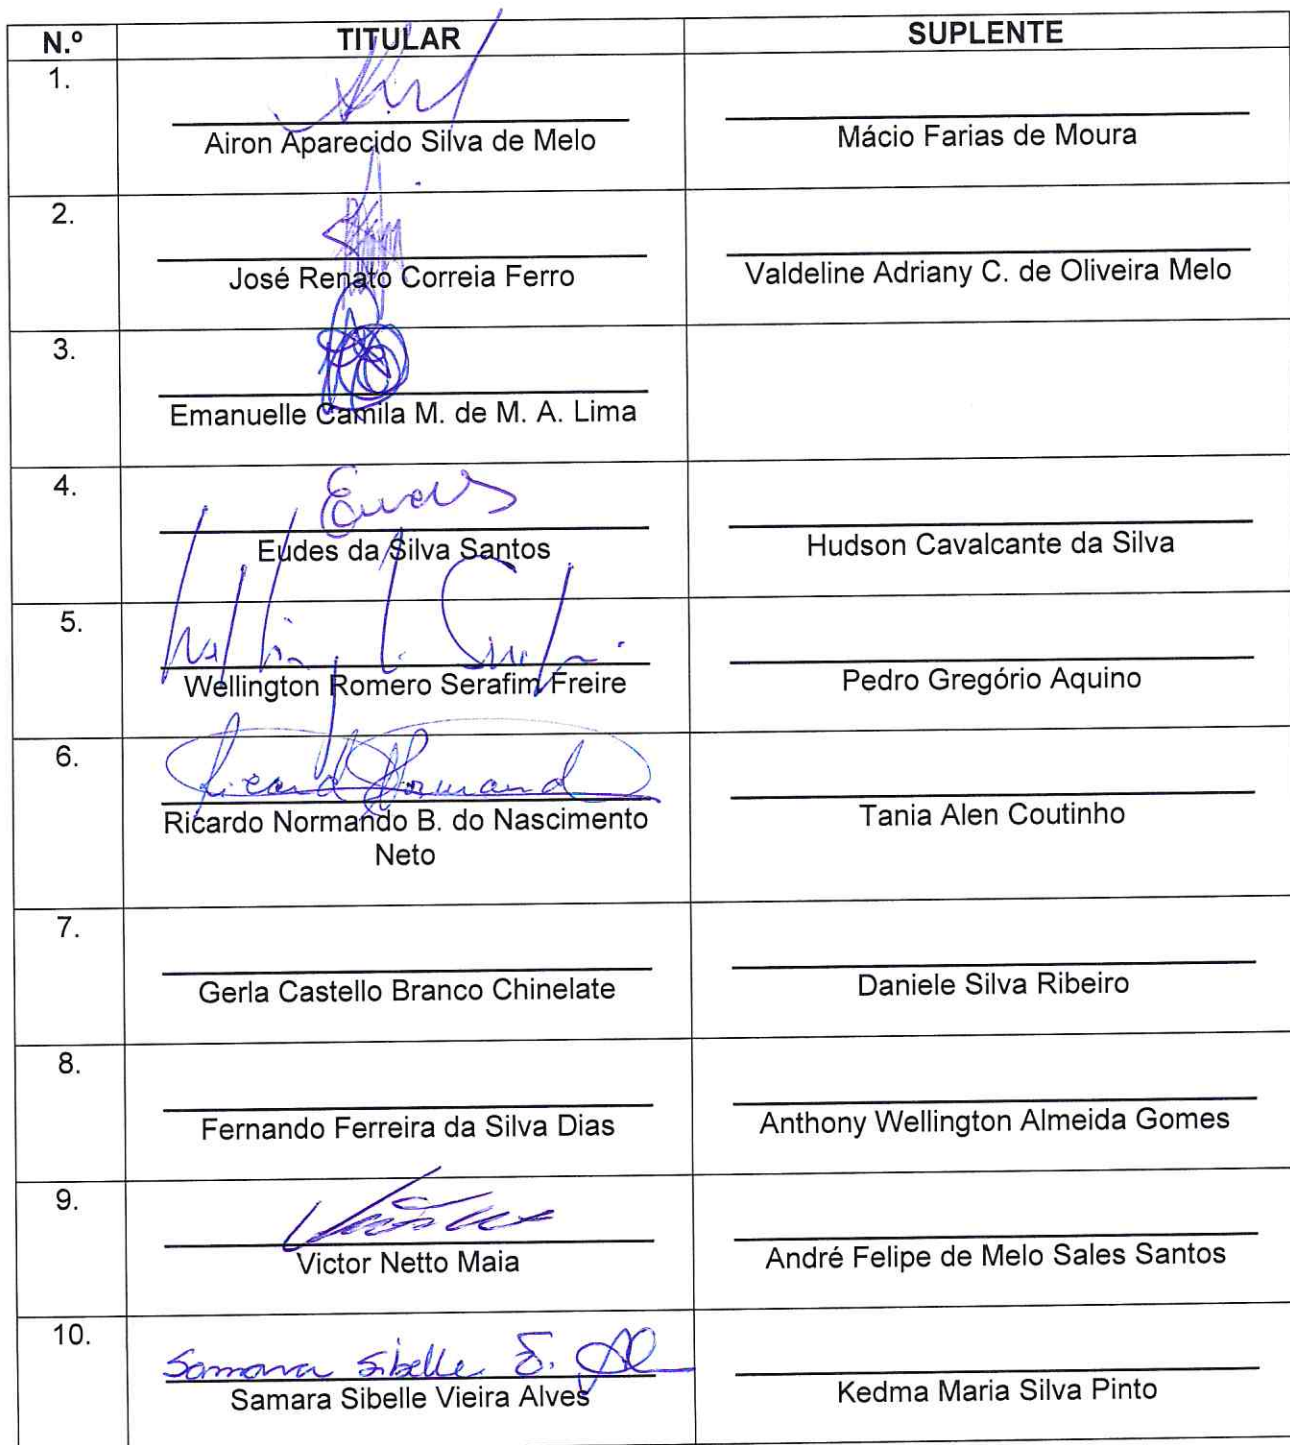 N.º TITULAR SUPLENTE
1.
Airon Aparecido Silva de Melo Mácio Farias de Moura
2.
José Renato Correia Ferro Valdeline Adriany C. de Oliveira Melo
3.
Emanuelle Camila M. de M. A. Lima
4.
Eudes
Eudes da Silva Santos Hudson Cavalcante da Silva
5.
Wellington Romero Serafim Freire Pedro Gregório Aquino
6.
Ricardo Normand
Ricardo Normando B. do Nascimento Tania Alen Coutinho
Neto
7.
Gerla Castello Branco Chinelate Daniele Silva Ribeiro
8.
Fernando Ferreira da Silva Dias Anthony Wellington Almeida Gomes
9.
Victor Netto Maia André Felipe de Melo Sales Santos
10.
Samara Sibelle
Samara Sibelle Vieira Alves Kedma Maria Silva Pinto